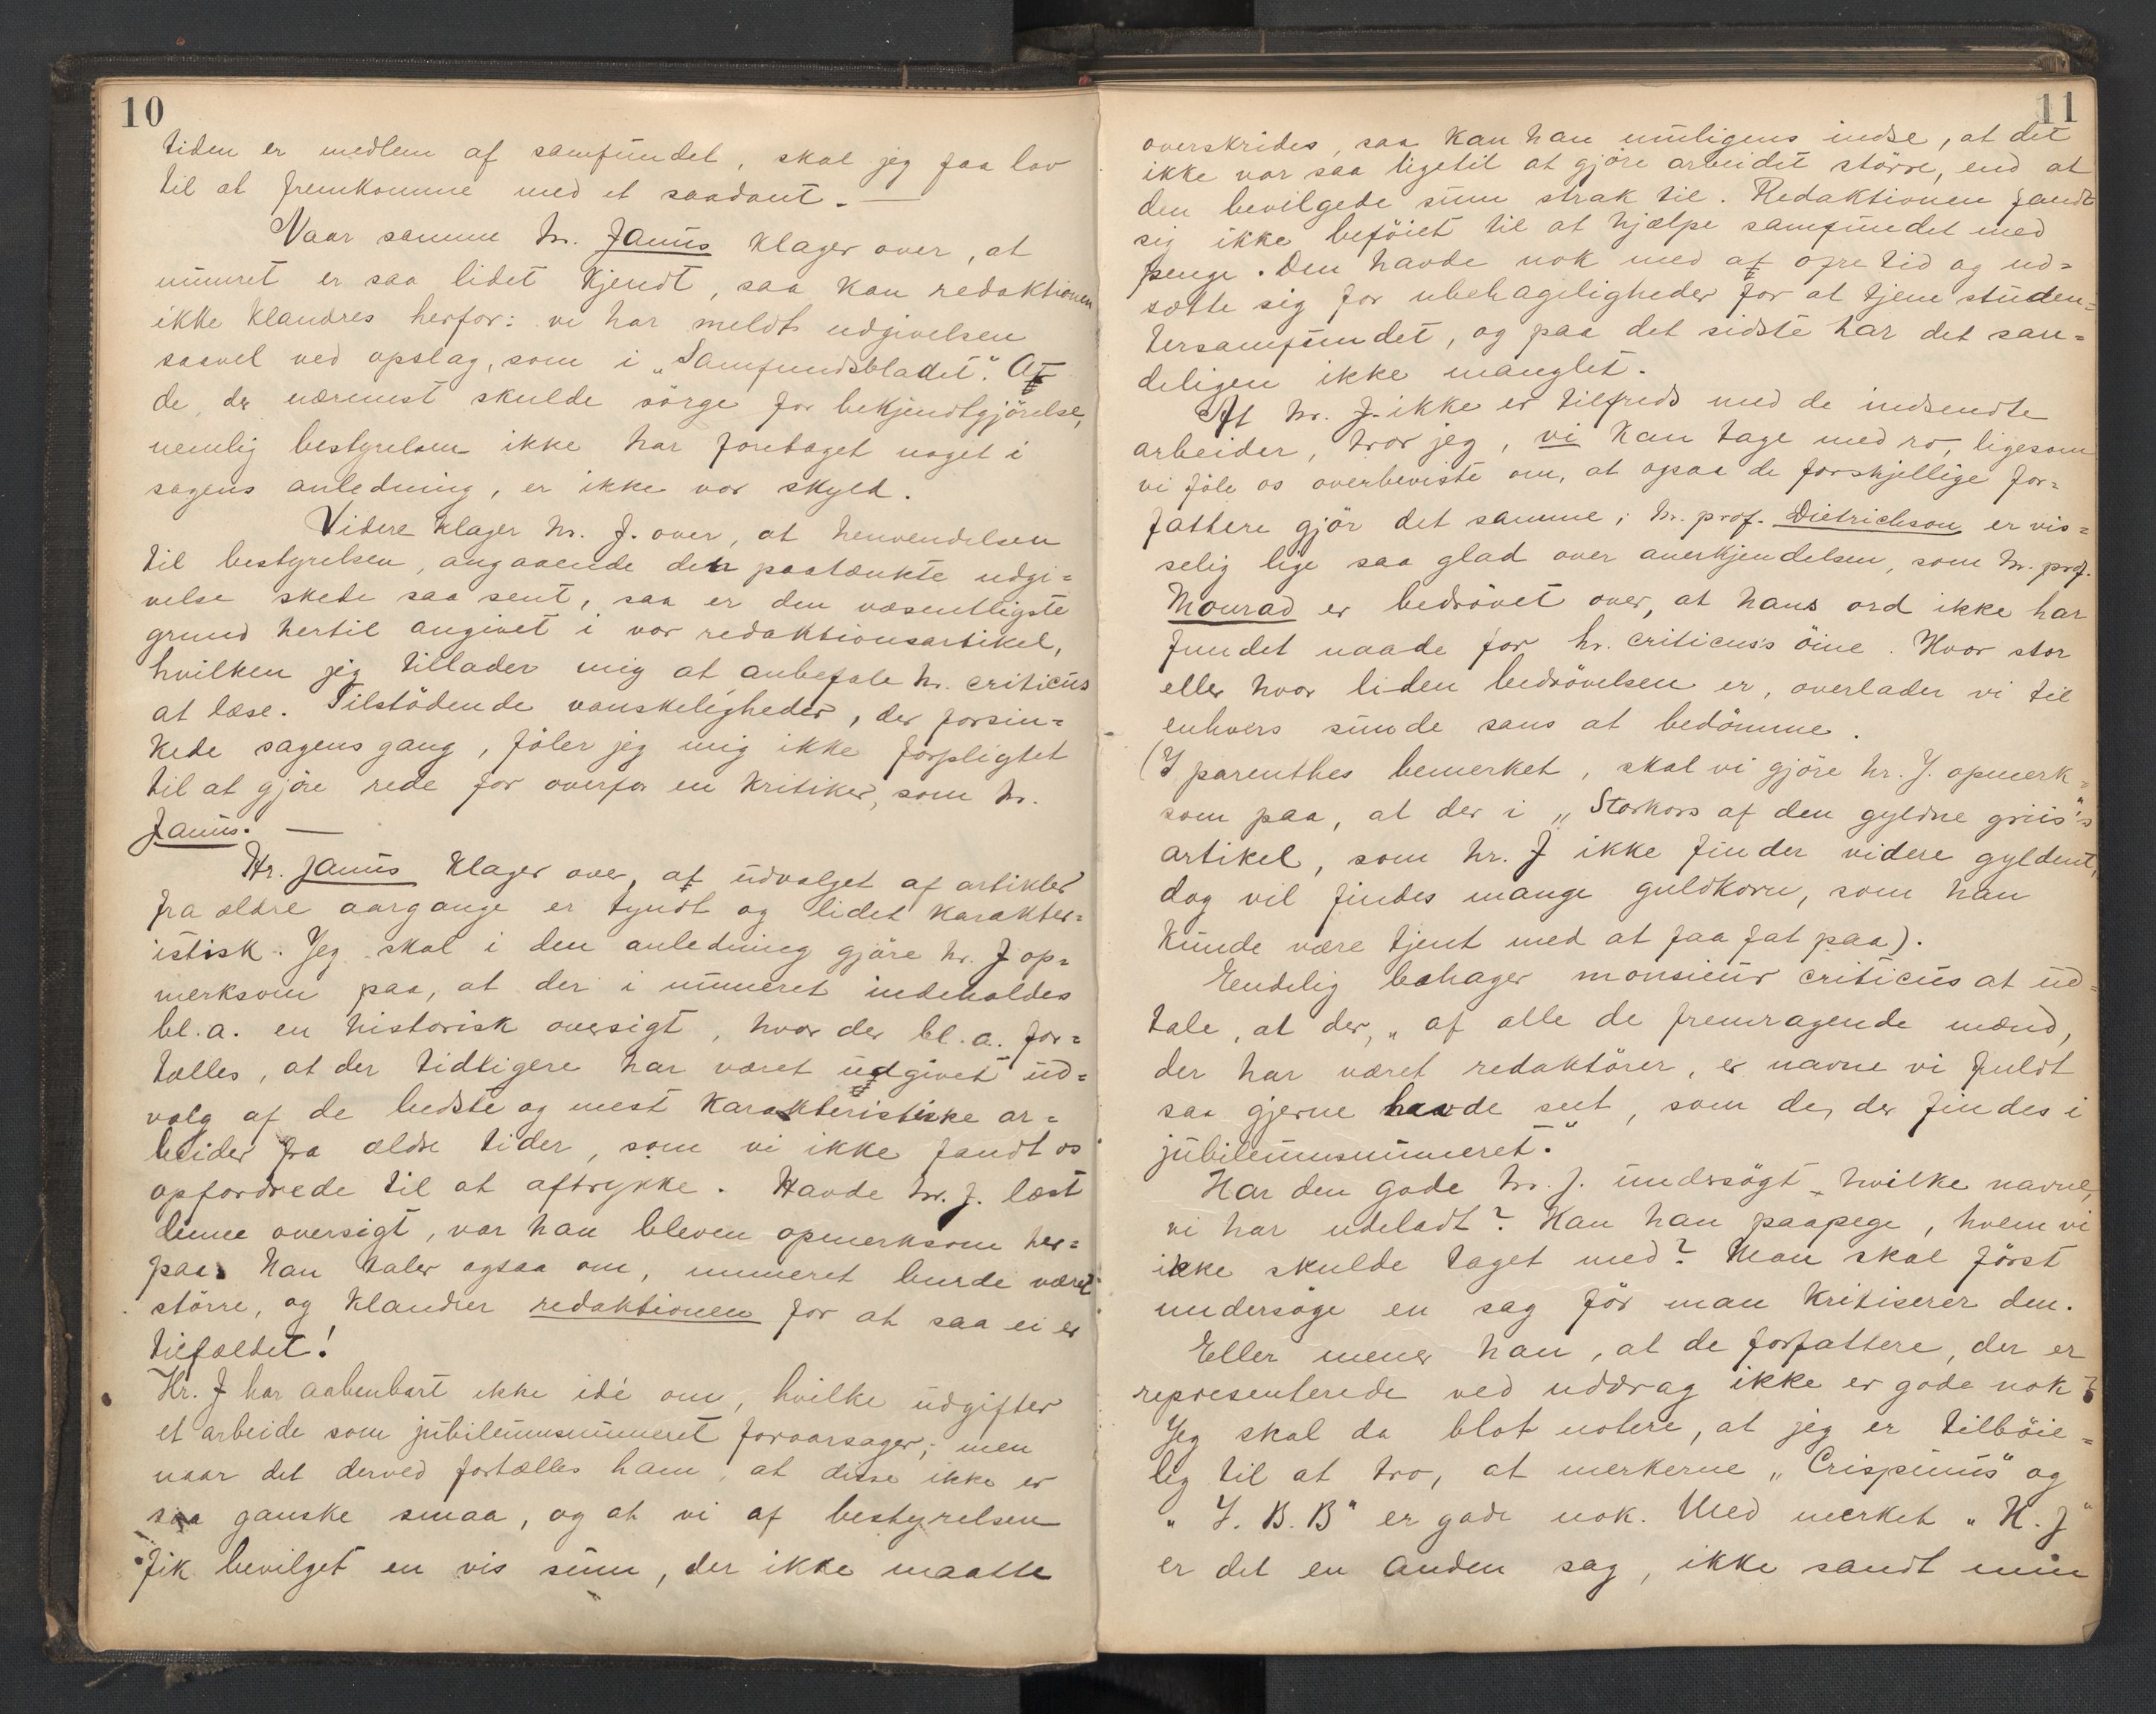 10
tiden er medlem af samfundet, skal jeg faa lov
til at fremkomme med et saadant. —
Naar samme hr. Janus klager over, at
numret er saa lidet kjendt, saa kan redaktionen
ikke klandres herfor: vi har meldt udgivelsen
saavel ved opslag, som i „Samfundsbladet". At
de, der nærmest skulde sörge for bekjendtgjörelse,
nemlig bestyrelsen ikke har foretaget noget i
sagens anledning, er ikke vor skyld.
Videre klager hr. J. over, at henvendelsen
til bestyrelsen, angaaende den paatænkte udgi=
velse skede saa sent, saa er den væsentligste
grund hertil angivet i vor redaktionsartikel,
hvilken jeg tillader mig at anbefale hr. criticus
at læse. Tilstödende vanskeligheder, der forsin=
kede sagens gang, föler jeg mig ikke forpligtet
til at gjöre rede for overfor en kritiker, som hr.
Janus. —
Hr. Janus klager over, at udvalget af artikler
fra ældre aargange er tyndt og lidet karakter=
istisk. Jeg skal i den anledning gjöre hr. J op=
merksom paa, at der i numeret indeholdes
bl.a. en historisk oversigt, hvor der bl.a. for=
tælles, at der tidligere har været udgivet ud=
valg af de bedste og mest karakteristiske ar=
beider fra ældre tider, som vi ikke fandt os
opfordrede til at aftrykke. Havde hr. J. læst
denne oversigt, var han bleven opmerksom her=
paa. Han taler ogsaa om, numeret burde været
större, og klandrer redaktionen for at saa ei er
tilfældet!
Hr. J har aabenbart ikke idé om, hvilke udgifter
et arbeide som jubilæumsnumeret foraarsager; men
naar det derved fortælles ham, at disse ikke er
saa ganske smaa, og at vi af bestyrelsen
fik bevilget en vis sum, der ikke maatte
11
overskrides, saa kan han muligens indse, at det
ikke var saa ligetil at gjöre arbeidet större, end at
den bevilgede sum strak til. Redaktionen fandt
sig ikke beföiet til at hjælpe samfundet med
penge. Den havde nok med at ofre tid og ud=
sætte sig for ubehageligheder for at tjene studen=
tersamfundet, og paa det sidste har det san=
deligen ikke manglet.
At hr. J. ikke er tilfreds med de indsendte
arbeider, tror jeg, vi kan tage med ro, ligesom
vi föle os overbeviste om, at ogsaa de forskjellige for=
fattere gjör det samme; hr. prof. Dietrichson er vis=
selig lige saa glad over anerkjendelsen, som hr. prof.
Monrad er bedrövet over, at hans ord ikke har
fundet naade for hr. criticus's öine. Hvor stor
eller hvor liden bedrövelsen er, overlader vi til
enhvers sunde sans at bedömme.
(I parenthes bemerket, skal vi gjöre hr. J. opmerk=
som paa, at der i „Storkors af den gyldne griis"'s
artikel, som hr. J ikke finder videre gyldent,
dog vil findes mange guldkorn, som han
kunde være tjent med at faa fat paa).
Endelig behager monsieur criticus at ud=
tale, at der, „af alle de fremragende mænd,
der har været redaktörer, er navne vi fuldt
saa gjerne havde seet, som de, der findes i
jubilæumsnumeret."
Har den gode hr. J. undersögt hvilke navne,
vi har udeladt? Kan han paapege, hvem vi
ikke skulde taget med? Man skal först
undersöge en sag för man kritiserer den.
Eller mener han, at de forfattere, der er
representerede ved uddrag ikke er gode nok?
Jeg skal da blot notere, at jeg er tilböie=
lig til at tro, at merkerne „Crispinus" og
„J. B. B" er gode nok. Med merket „H. J"
er det en anden sag, ikke sandt min